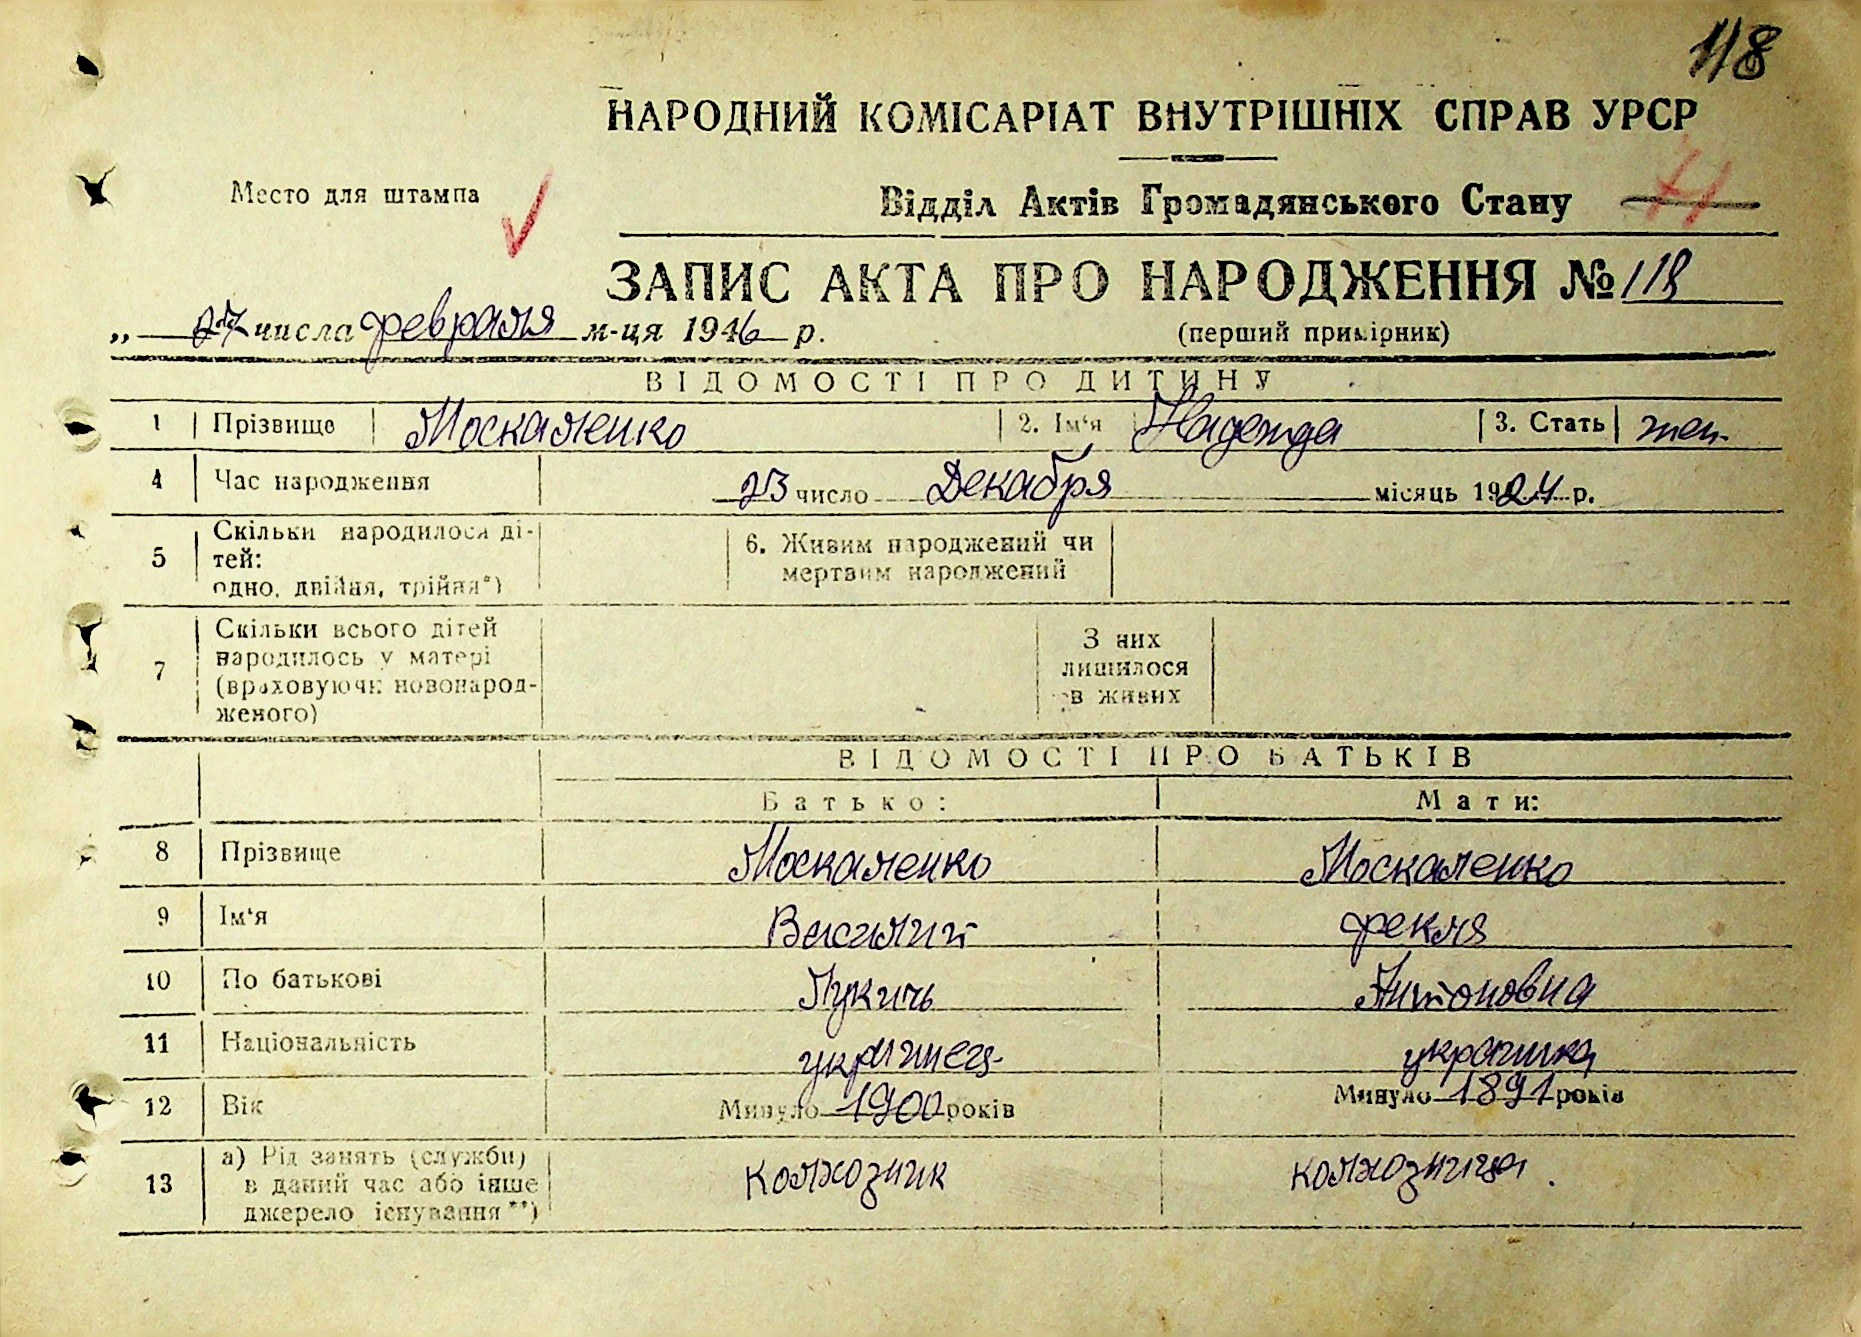 118
НАРОДНИЙ КОМІСАРІАТ ВНУТРІШНІХ СПРАВ УРСР
Место для штампа
Відділ Актів Громадянського Стану
ЗАПИС АКТА ПРО НАРОДЖЕННЯ № 118
„ 27 числа февраля м-ця 1946 р.
(перший примірник)
ВІДОМОСТІ ПРО ДИТИНУ
1 Прізвище Москаленко 2. Ім‘я Надежда 3. Стать жен.
4 Час народження 23 число Декабря місяць 1924 р.
5 Скільки народилося ді-
тей:
одно, двійня, трійня*)
6. Живим народжений чи
мертвим народжений
7 Скільки всього дітей
народилось у матері
(враховуючи новонарод-
женого)
З них
лишилося
в живих
ВІДОМОСТІ ПРО БАТЬКІВ
Батько: Мати:
8 Прізвище Москаленко Москаленко
9 Ім‘я Василий Фекля
10 По батькові Лукичь Антоновна
11 Національність украинец украинка
12 Вік Минуло 1900 років Минуло 1891 років
13 а) Рід занять (служби)
в даний час або інше
джерело існування**)
колхозник колхозница.